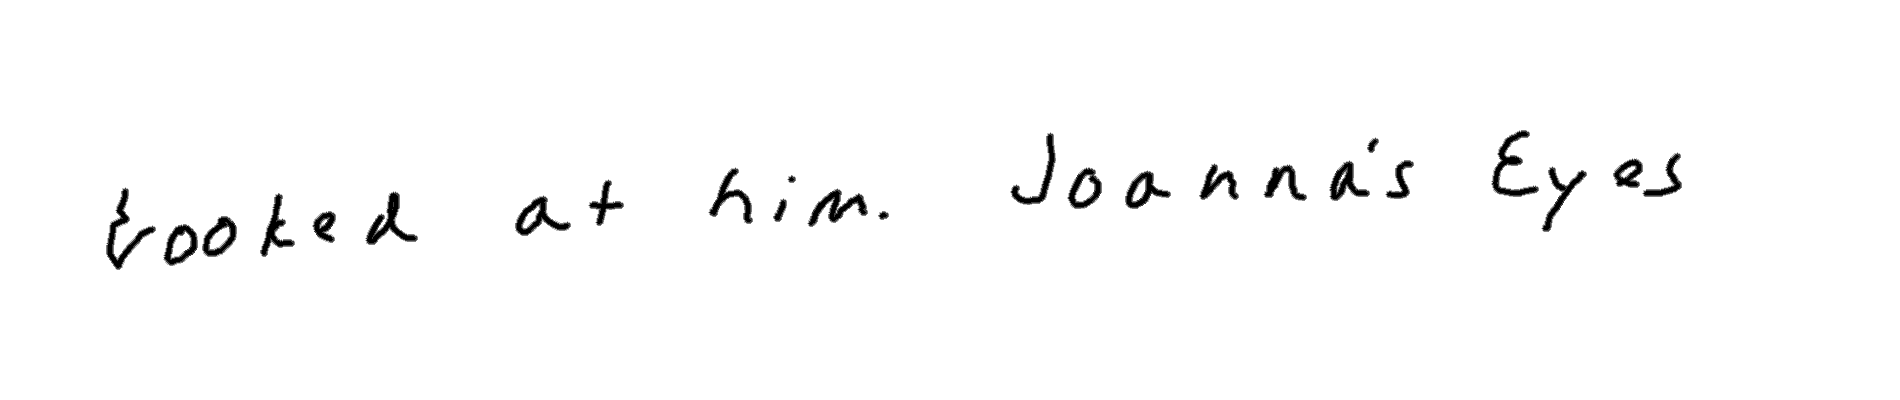 looked at him. Joanna's Eyes